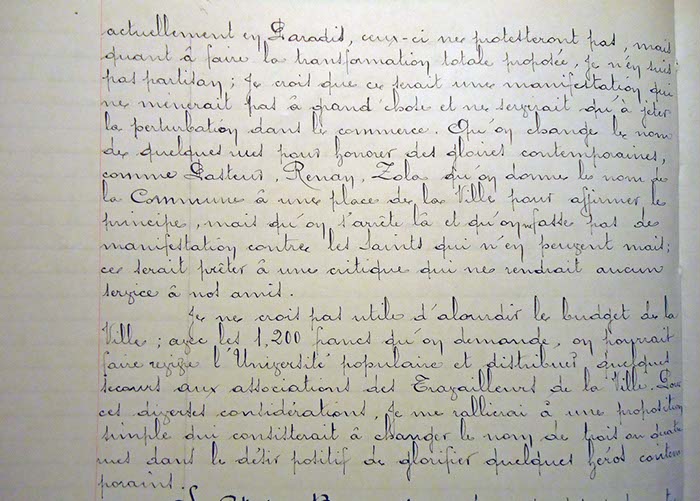 actuellement en Paradis, ceux-ci ne protesteront pas, mais
quant à faire la transformation totale proposée, je n'en suis
pas partisan ; je crois que ce serait une manifestation qui
ne mènerait pas à grand'chose et ne servirait qu'à jeter
la perturbation dans le commerce. Qu'on change le nom
de quelques rues pour honorer des gloires contemporaines,
comme Pasteur, Renan, Zola qu'on donne le nom de
la Commune à une place de la Ville pour affirmer le
principe, mais qu'on s'arrête là et qu'on ne fasse pas de
manifestation contre les Saints qui n'en peuvent mais ;
ce serait prêter à une critique qui ne rendrait aucun
service à nos amis.
Je ne crois pas utile d'alourdir le budget de la
Ville ; avec les 1,200 francs qu'on demande, on pourrait
faire revivre l'Université populaire et distribuer quelques
secours aux associations des Travailleurs de la Ville. Pour
ces diverses considérations, je me rallierai à une proposition
simple qui consisterait à changer le nom de trois ou quatre
rues dans le désir positif de glorifier quelques héros contem
porains.